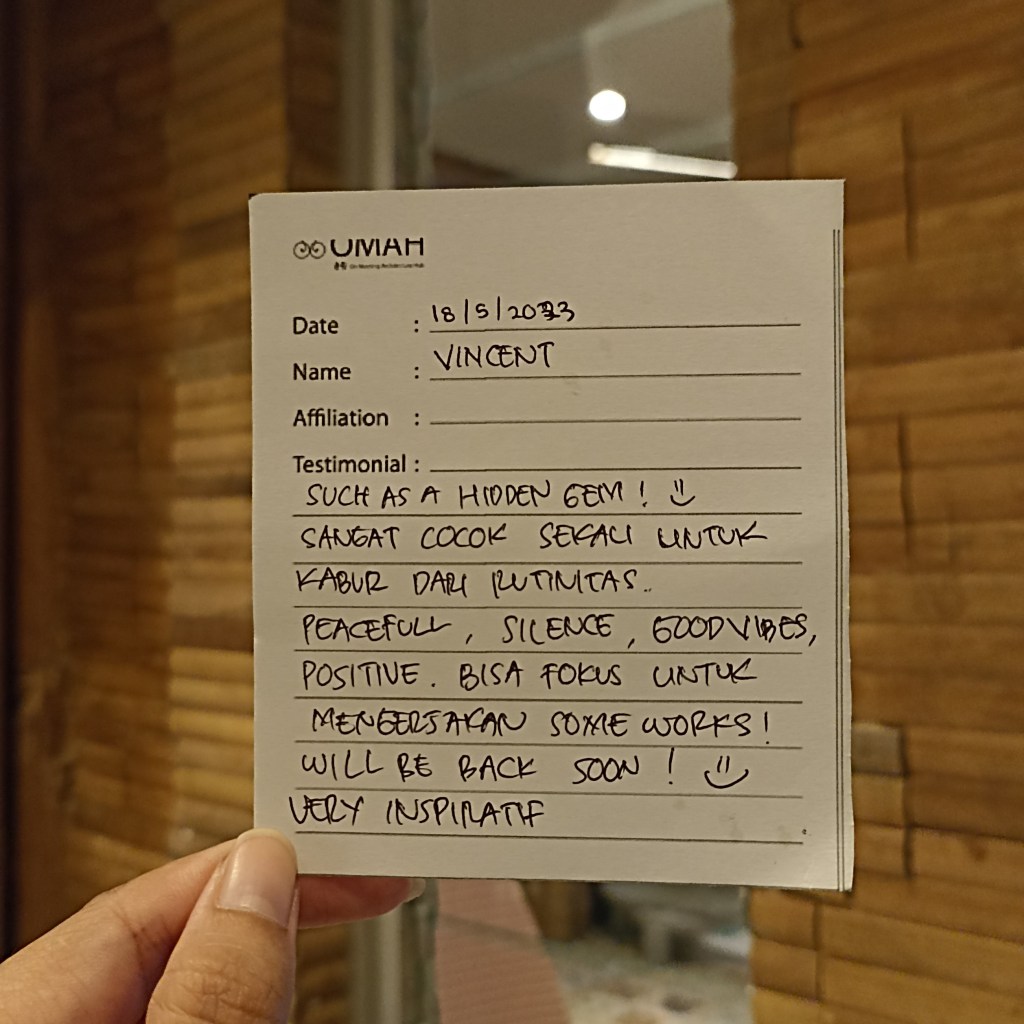 UMAH
Date : 18/5/2023
Name : VINCENT
Affiliation :
Testimonial :
SUCH AS A HIDDEN GEM! :)
SANGAT COCOK SEKALI UNTUK
KABUR DARI RUTINITAS..
PEACEFULL, SILENCE, GOOD VIBES,
POSITIVE. BISA FOKUS UNTUK
MENGERJAKAN SOME WORKS!
WILL BE BACK SOON! :)
VERY INSPIRATIF